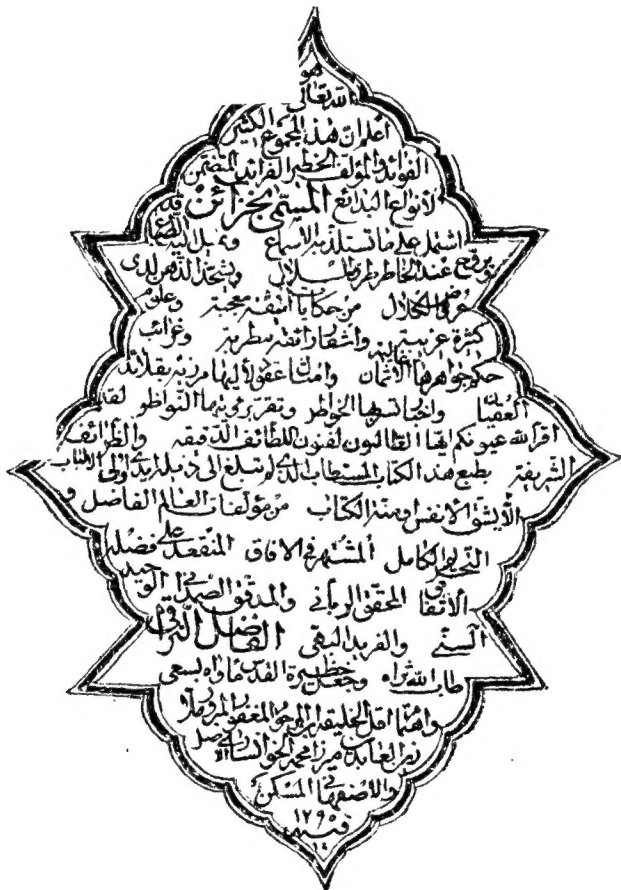 هو
الله تعالى
اعلم ان هذا المجموع الكثير
الفوائد والمؤلف الخطير الفرائد المتضمن
لأنواع البدائع المسمى بخزائن قد
اشتمل على ما تستلذ به الاسماع و تميل اليه الطباع
ويرفع عند الخاطر الملال ويشحذ الذهن لدى
الكلال من حكايات انيقة معجبة وعلوم
كثيرة غريبة واشعار رائقة مطربة وغرائب
حكم جواهرها غالية الأثمان وامثال عقود لأليها مزرية بقلائد
العقيان الخواطر وتقر برؤيتها النواظر لقد
اقر الله عيونكم ايها الطالبون لفنون اللطائف الدقيقه والظرائف
الشريفة بطبع هذا الكتاب المستطاب الذى لم تبلغ الى ذيله ايدى اولى الالباب
الانفس الكتاب من مؤلفات العالم الفاضل و
النحرير الكامل المشتهر فى الافاق المنعقد على فضله
الأتفاق المحقق الربانى والمدقق الصمدانى الوحيد
السنى والفريد البقى الفاضل النراقى
طاب الله ثراه وجعل حظيرة القدس مأواه بسعى
واهتمام اقل الخليقة ابن المرحوم المغفور المبرور ملا
زين العابدين ميرزا محمد الخوانسارى الأصل
والاصفهانى المسكن
فى سنة ١٢٩٥